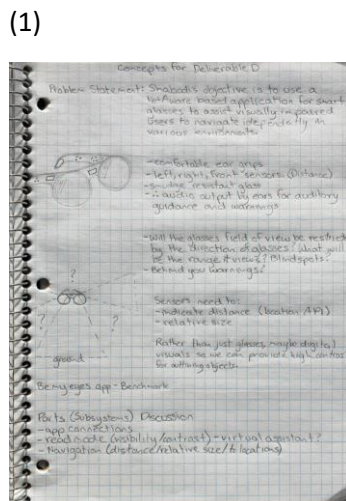 (1)
Concepts for Deliverable D
Problem Statement: Shabodi's objective is to use a
NetAware based application for smart
glasses to assist visually impaired
Users to navigate independently in
various environments.
-comfortable ear grips
-left, right, front sensors (Distance)
-smudge resistant glass
-audio output by ears for auditory
guidance and warnings
-Will the glasses field of view be restricted
by the direction of glasses? What will
be the range it views? Blindspots?
-Behind you warnings?
?
?
?
ground
Sensors need to:
-indicate distance (location API)
-relative size
Rather than just glasses, maybe digital
visuals so we can provide high contrast
for outlining objects.
Be my eyes app - Benchmark
Parts (Subsystems) Discussion
-app connections
-read mode (visibility/contrast) - virtual assistant?
-Navigation (distance/relative size/ locations)